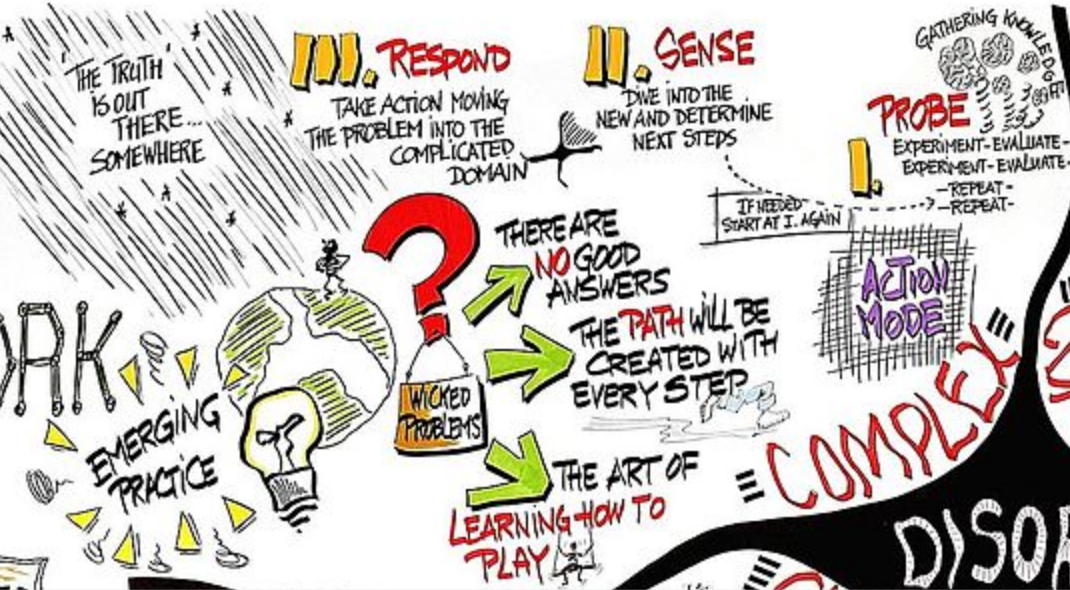 'THE TRUTH'
IS OUT
THERE...
SOMEWHERE
III. RESPOND
TAKE ACTION MOVING
THE PROBLEM INTO THE
COMPLICATED
DOMAIN
II. SENSE
DIVE INTO THE
NEW AND DETERMINE
NEXT STEPS
GATHERING KNOWLEDGE
I. PROBE
EXPERIMENT-EVALUATE-
EXPERIMENT-EVALUATE-
-REPEAT-
-REPEAT-
IF NEEDED
START AT I. AGAIN
ACTION
MODE
THERE ARE
NO GOOD
ANSWERS
THE PATH WILL BE
CREATED WITH
EVERY STEP
WICKED
PROBLEMS
THE ART OF
LEARNING HOW TO
PLAY
EMERGING
PRACTICE
COMPLEX